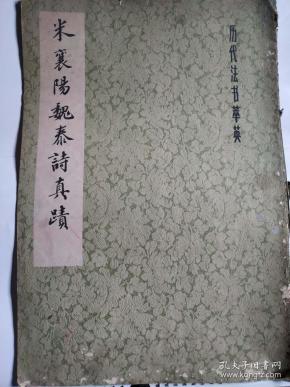 历代法书萃英
米襄陽魏泰詩真蹟
孔夫子旧书网